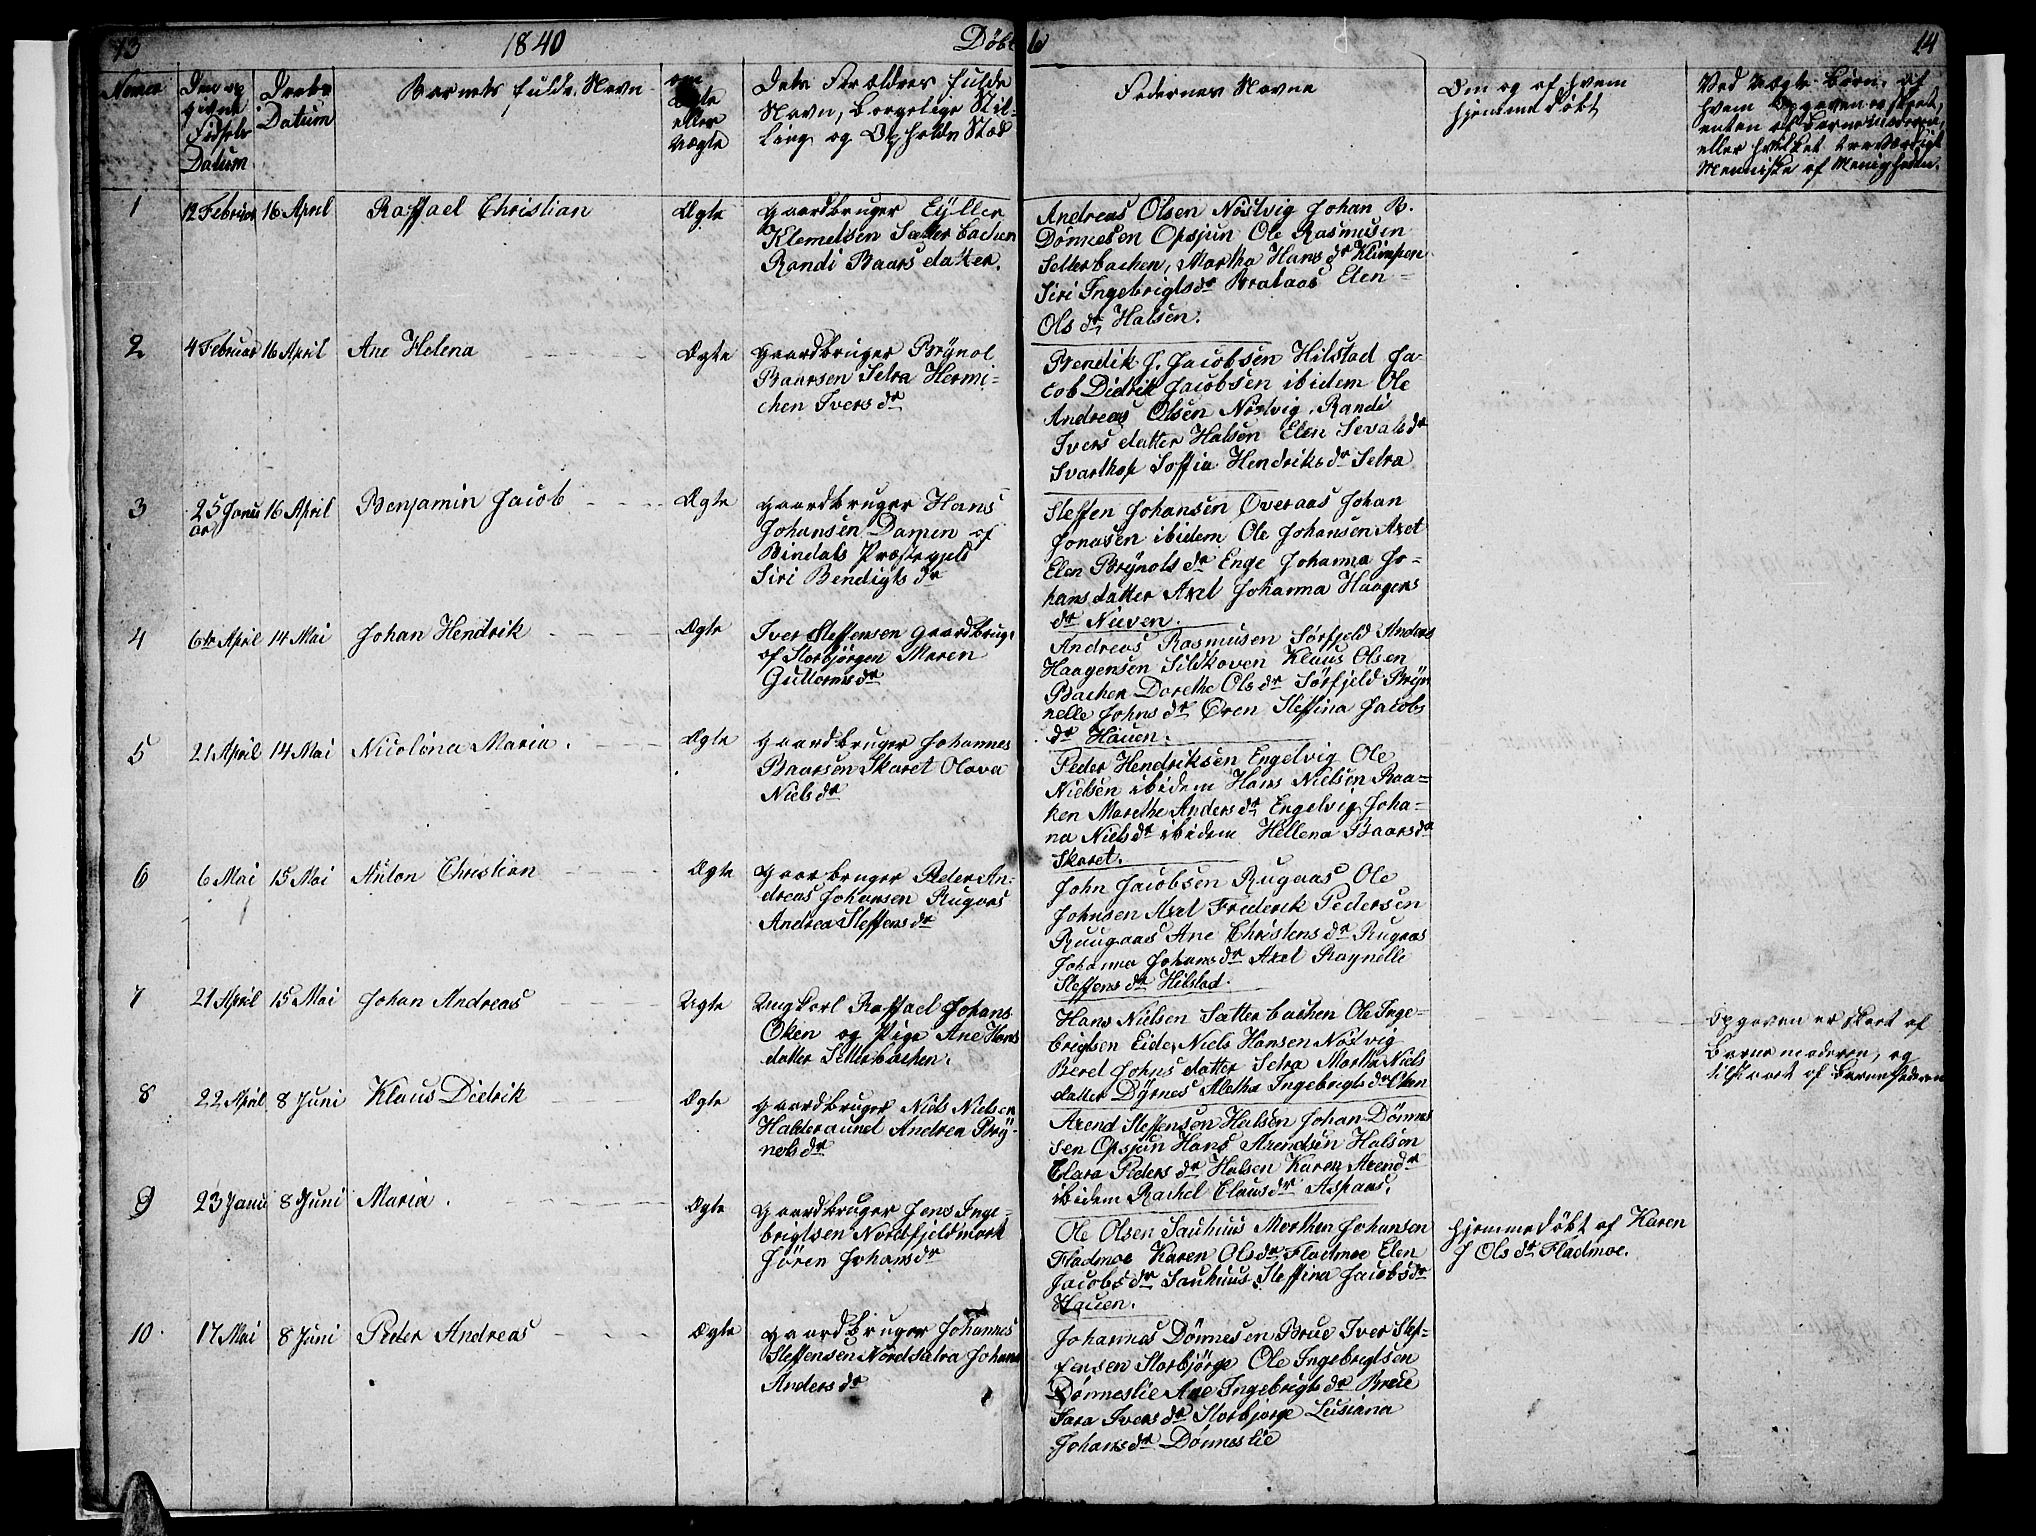 13
1840
Døbte
14
Numer
Den op
givne
Fødsels
Datum
Daabs
Datum
Barnets fulde Navn
om
Ægte
eller
Uægte
Dets Forældres fulde
Navn, borgelige Stil-
ling og Opholds Stæd
Fadernes Navne
Om og af hvem
hjemmedøbt
Ved Uægte Børn, af
hvem Opgaven er skeet,
enten af Barnemoderen,
eller hvilket troeværdigt
Menniske af Menigheden.
1
12 Februar
16 April
Raffael Christian
Ægte
Gaardbruger Eyller
Klemetsen Satterbachen
Randi Baarsdatter.
Andreas Olsen Nöstvig Johan B.
Dönnesen Opsjun Ole Rasmusen
Setterbachen, Martha Hans dr Klimpen
Siri Ingebrigts dr Brataas Elen
Ols dr Halsen.
2
4 Februar
16 April
Ane Helena
Ægte
Gaardbruger Brÿnol
Baarsen Setra Hermi-
chen Ivers dr
Bendik J. Jacobsen Hilstad Ja-
cob Didrik Jacobsen ibidem Ole
Andreas Olsen Nöstvig, Randi
Ivers datter Halsen Elen Sevals dr
Svarthop Soffia Hendriks dr Setra
3
25 Janu
ar
16 April
Benjamin Jacob
Ægte
Gaardbruger Hans
Johansen Damen af
Bindals Præstegjeld
Siri Bendigts dr
Steffen Johansen Överaas Johan
Jonasen ibidem Ole Johansen Axet
Elen Brÿnols dr Enge Johanna Jo-
hans datter Axel Johanna Haagens
dr Nieven.
4
6te April
14 Mai
Johan Hendrik
Ægte
Iver Steffensen Gaardbrug.
af Storbjörgen Maren
Guttorms dr
Andreas Rasmusen Sörfjeld Anders
Haagensen Sildkoven Klaus Olsen
Bachen Dorethe Ols dr Sörfjeld Brÿn
nelle Johns dr Ören Steffina Jacobs
dr Hauen.
5
21 April
14 Mai
Nicolina Maria.
Ægte
Gaardbruger Johannes
Baarsen Skaret Olava
Niels dr
Peder Hendriksen Engelvig Ole
Nielsen ibidem Hans Nielsen Baa-
ken Marethe Anders dr Engelvig Joha-
na Niels dr ibidem Hellena Baars dr
Skaret.
6
6 Mai
15 Mai
Anton Christian
Ægte
Gaarbruger Peder An-
dreas Johansen Rugaas
Andrea Steffens dr
John Jacobsen Rugaas Ole
Johnsen Axel Frederik Pedersen
Ruugaas Ane Christens dr Rugaas
Johanna Johans dr Axel Raynelle
Steffens dr Hilstad.
7
21 April
15 Mai
Johan Andreas
Uægte
Ungkarl Raffael Johans
Oken og Pige Ane Hans
datter Setterbachen.
Hans Nielsen Satterbachen Ole Inge-
brigtsen Eide, Niels Hansen Nöstvig
Beret Johns datter Setra Martha Niels
datter Dÿrnes Aletha Ingebrigts dr Oken
Opgaven er skeet af
Barnemoderen, og
tilstaaet af Barnefaderen
8
22 April
8 Juni
Klaus Didrik
Ægte
Gaardbruger Niels Nielsen
Halderaunet Andrea Brÿ-
nols dr
Arend Steffensen Halsen Johan Dönnes
sen Opsjun Hans Arendsen Halsen
Clara Peders dr Halsen Karen Arend dr
ibidem Rachel Claus dr Aspaas.
9
23 Janu
8 Juni
Maria.
Ægte
Gaardbruger Jens Inge-
brigtsen Nordfjeldmark
Jören Johans dr
Ole Olsen Sauhuus Morthen Johansen
Fladmoe Karen Ols dr Fladmoe Elen
Jacobs dr Sauhuus Steffina Jacobs dr
Hauen.
hjemmedøbt af Karen
J Ols dr Fladmoe.
10.
17 Mai
8 Juni
Peder Andreas
Ægte
Gaardbruger Johannes
Steffensen Nordsatra Johana
Anders dr
Johannes Dönnesen Brue Iver Stef-
fensen Storbjörge Ole Ingebrigtsen
Dönneslie Ane Ingebrigts dr Brue
Sara Ivers dr Storbjorge Lusiana
Johans dr Dönneslie